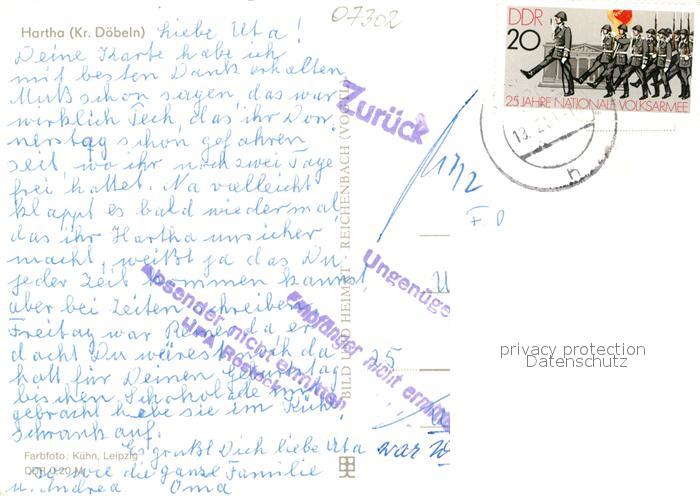 07302
Hartha (Kr. Döbeln) Liebe Uta!
Deine Karte habe ich
mit besten Dank erhalten
Muß schon sagen, das war
wirklich Pech, das ihr Don-
nerstag schon gefahren
seit, wo ihr noch zwei Tage
frei hattet. Na vielleicht
klappt es bald wiedermal
das ihr Hartha unsicher
macht, weißt ja das Du
jeder Zeit kommen kannst,
aber bei Zeiten schreiben.
Freitag war René da er
dacht Du wärest noch da
halt für Deinen Geburtstag
bischen Schokolade mit
gebracht habe sie im Kühl
schrank auf.
Es grüßt Dich liebe Uta
so wie die ganze Familie
u. Andrea Oma
Farbfoto: Kühn, Leipzig
DDR 0,20 M
BILD UND HEIMAT · REICHENBACH (VOGTL
DDR
20
25 JAHRE NATIONALE VOLKSARMEE
Zurück
Ungenüge
Absender nicht ermitteln
Empfänger nicht ermitt
25
war
privacy protection
Datenschutz